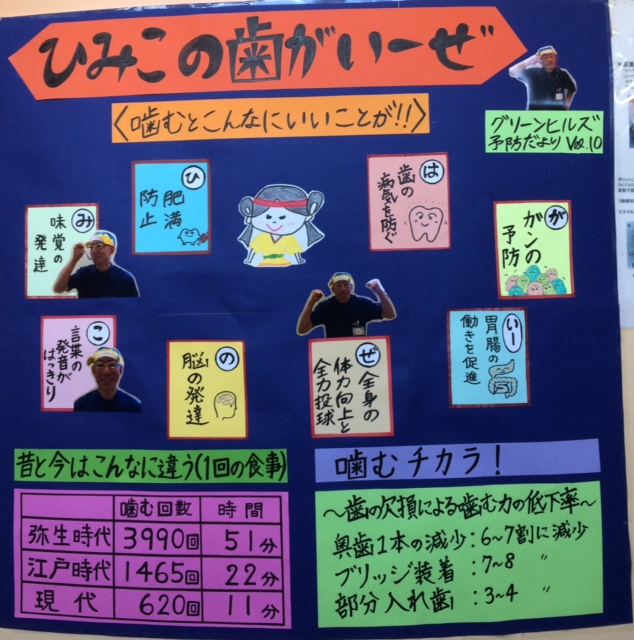 ひみこの歯がいーぜ
〈噛むとこんなにいいことが!!〉
グリーンヒルズ
予防だより Vol.10
ひ
肥満
防止
み
味覚の
発達
こ
言葉の
発音が
はっきり
の
脳の発達
は
歯の
病気を防ぐ
が
ガンの
予防
いー
胃腸の
働きを促進
ぜ
全身の
体力向上と
全力投球
昔と今はこんなに違う(1回の食事)
噛む回数 時間
弥生時代 3990回 51分
江戸時代 1465回 22分
現代 620回 11分
噛むチカラ!
～歯の欠損による噛む力の低下率～
奥歯1本の減少:6~7割に減少
ブリッジ装着:7~8 〃
部分入れ歯:3~4 〃